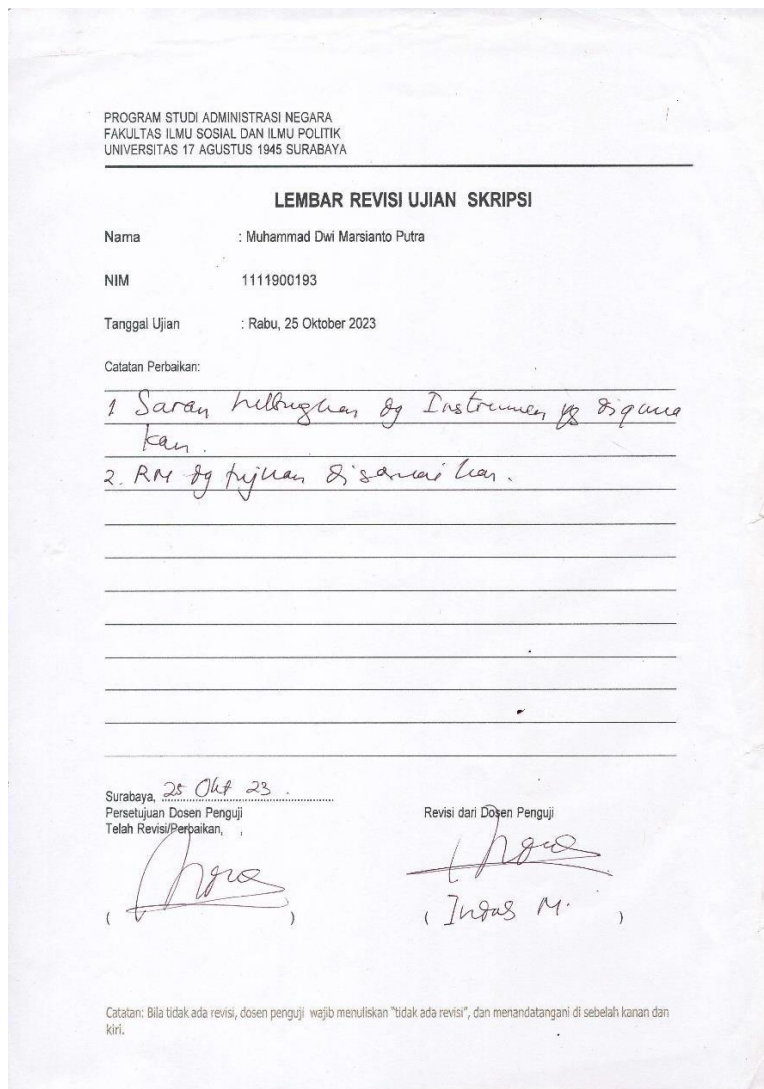 PROGRAM STUDI ADMINISTRASI NEGARA
FAKULTAS ILMU SOSIAL DAN ILMU POLITIK
UNIVERSITAS 17 AGUSTUS 1945 SURABAYA
LEMBAR REVISI UJIAN SKRIPSI
Nama : Muhammad Dwi Marsianto Putra
NIM 1111900193
Tanggal Ujian : Rabu, 25 Oktober 2023
Catatan Perbaikan:
1 Saran hubungkan dg Instrumen yg diguna
kan.
2. RM dg tujuan disesuaikan.
Surabaya, 25 Okt 23.
Persetujuan Dosen Penguji Revisi dari Dosen Penguji
Telah Revisi/Perbaikan,
( ) ( M. )
Catatan: Bila tidak ada revisi, dosen penguji wajib menuliskan "tidak ada revisi", dan menandatangani di sebelah kanan dan
kiri.